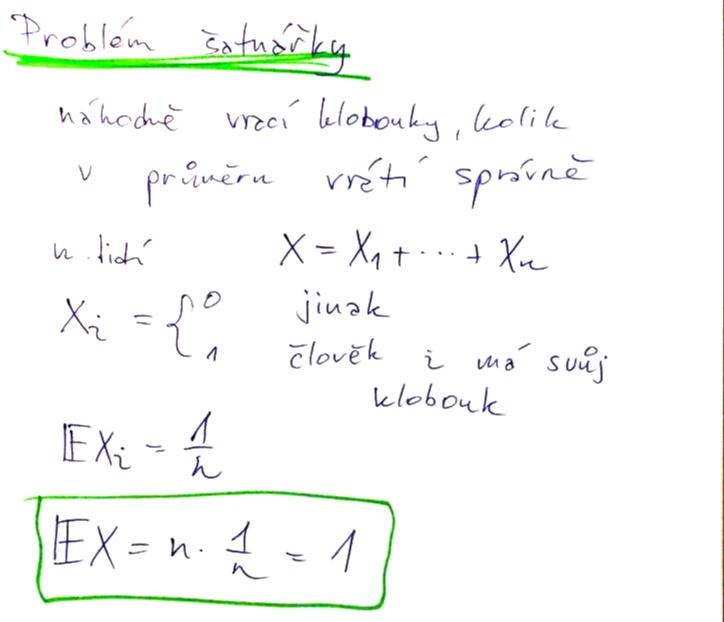 Problém šatnářky
náhodně vrací klobouky, kolik
v průměru vrátí správně
n lidí X = X₁ + ⋯ + Xₙ
Xᵢ = { 0 jinak
1 člověk i má svůj
klobouk
𝔼Xᵢ = 1/n
𝔼X = n · 1/n = 1